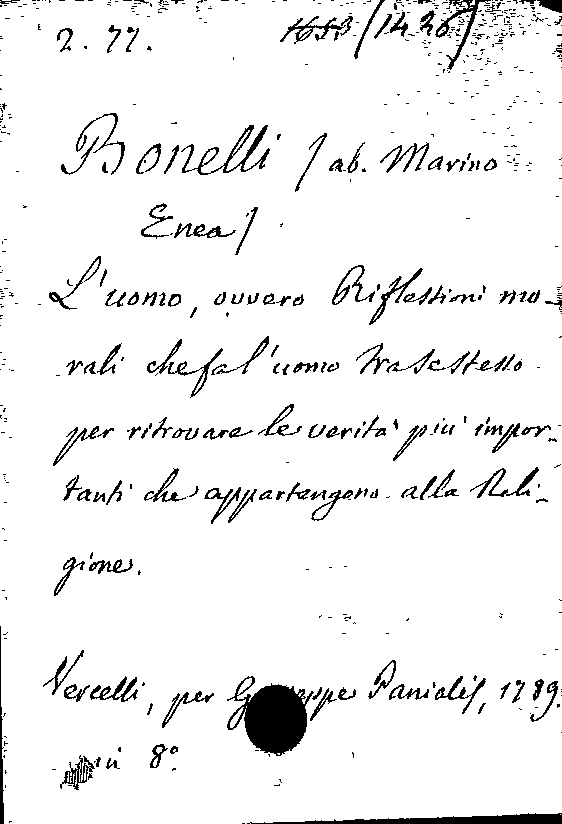 2. 77. 1653 (1426)
Bonelli / ab. Marino
Enea /
L'uomo, ovvero Riflessioni mo-
rali che fa l'uomo tra se stesso
per ritrovare le verità più impor-
tanti che appartengono alla Reli-
gione.
Vercelli, per Giuseppe Panialis, 1789.
in 8°.